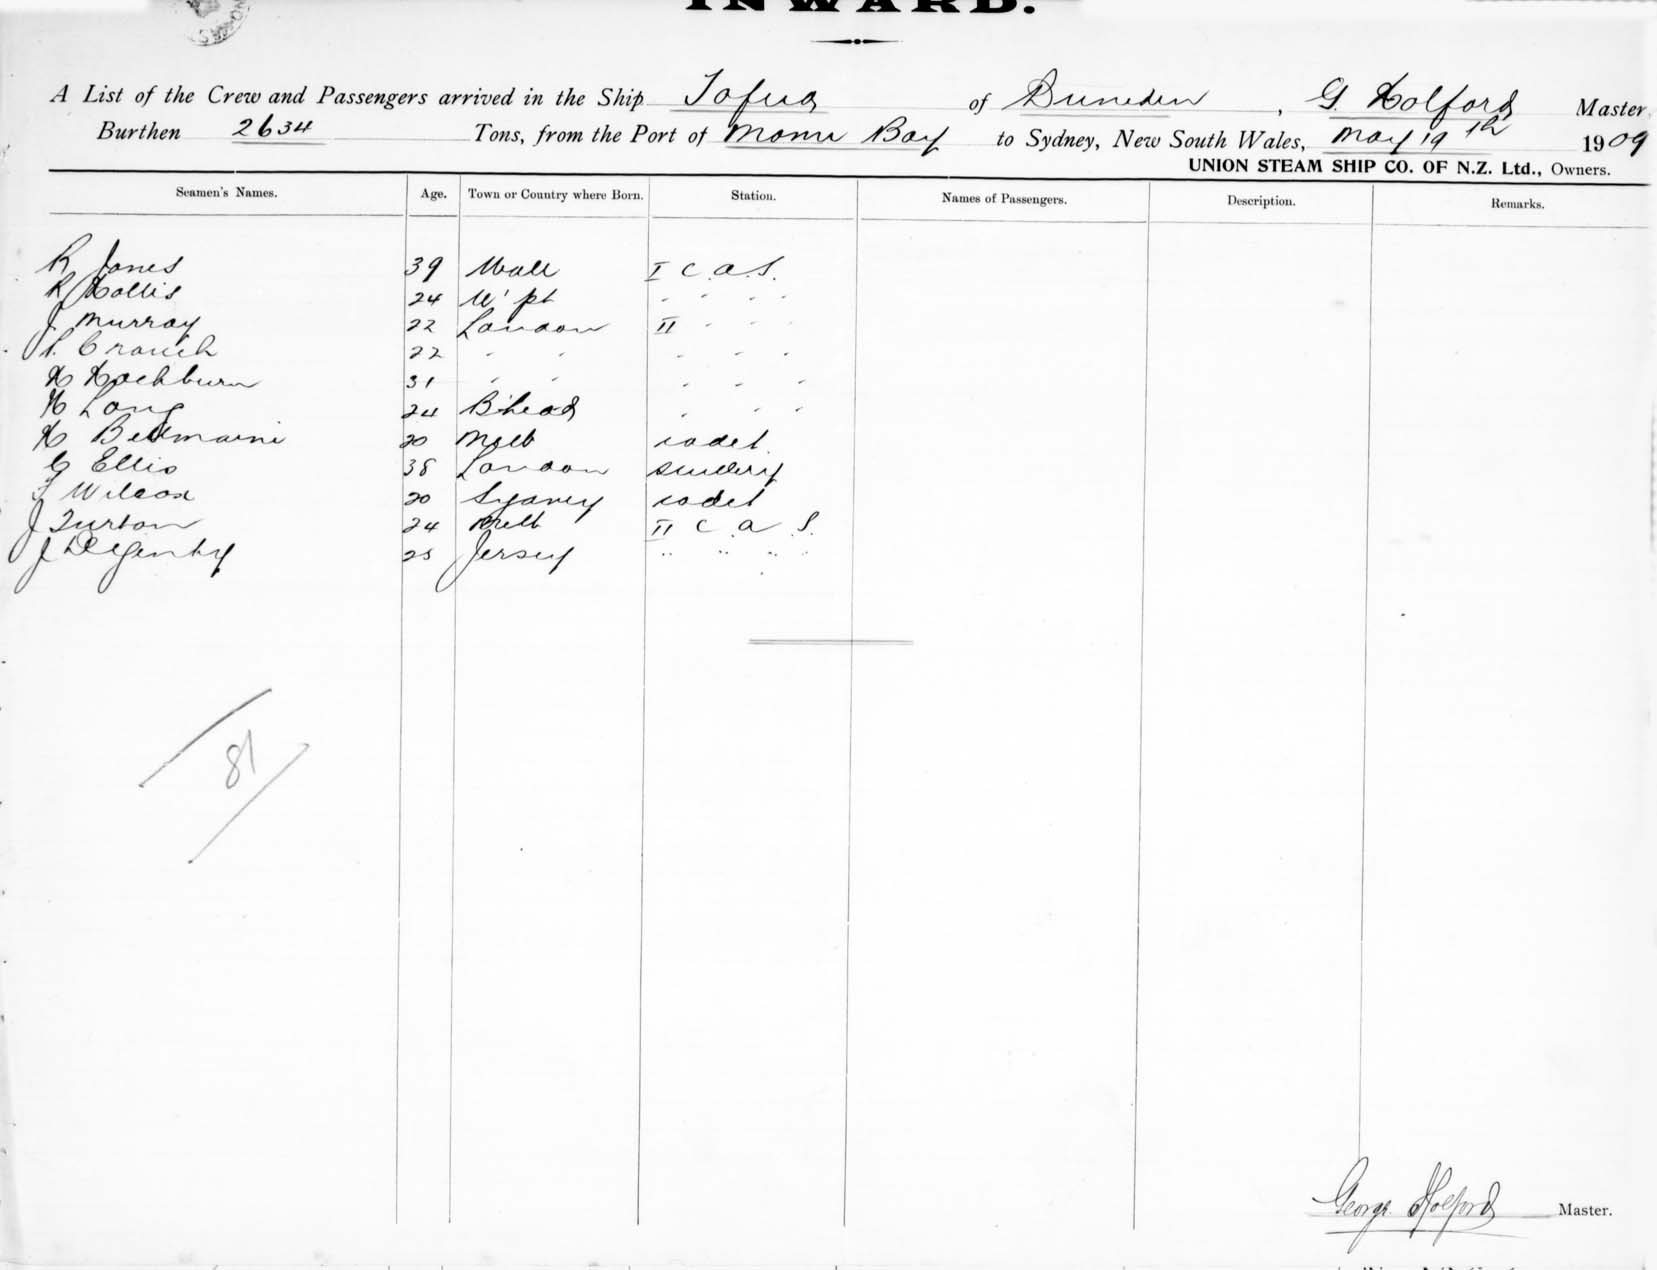 INWARD.
A List of the Crew and Passengers arrived in the Ship Tofua of Dunedin, G. Holford Master,
Burthen 2634 Tons, from the Port of Momi Bay to Sydney, New South Wales, May 19th 1909
UNION STEAM SHIP CO. OF N.Z. Ltd., Owners.
Seamen's Names. Age. Town or Country where Born. Station. Names of Passengers. Description. Remarks.
R Jones 39 I C.A.S.
R Hollis 24 " " " "
J Murray 22 London II " " "
Crouch 22 " " " " "
H Hockburn 31 " " " " "
H Long 24 B'head " " "
H 20 Melb cadet
G Ellis 38 London
F Wilcox 20 Sydney cadet
J Turton 24 Melb II C A S.
J 25 Jersey " " " "
81
George Holford Master.